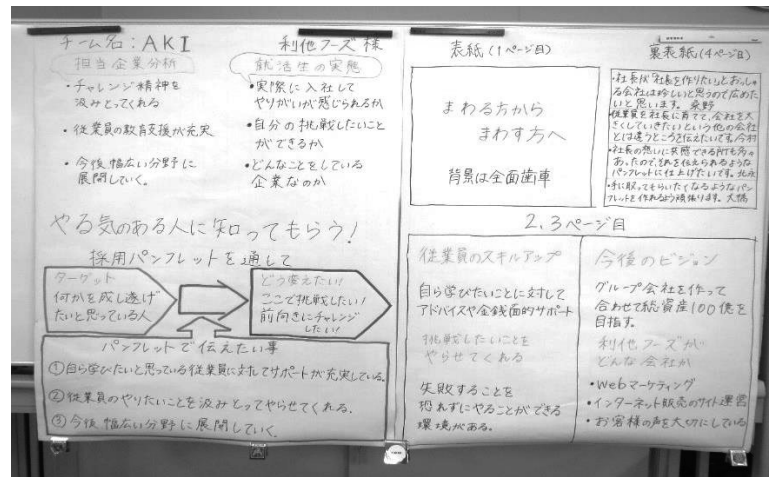 チーム名：AKI
利他フーズ 様
担当企業分析
・チャレンジ精神を
汲みとってくれる
・従業員の教育支援が充実
・今後幅広い分野に
展開していく。
就活生の実態
・実際に入社して
やりがいが感じられるか
・自分の挑戦したいこと
ができるか
・どんなことをしている
企業なのか
やる気のある人に知ってもらう!
採用パンフレットを通して
ターゲット
何かを成し遂げ
たいと思っている人
どう変えたい!
ここで挑戦したい!
前向きにチャレンジ
したい!
パンフレットで伝えたい事
①自ら学びたいと思っている従業員に対してサポートが充実している。
②従業員のやりたいことを汲みとってやらせてくれる。
③今後幅広い分野に展開していく。
表紙(1ページ目)
まわる方から
まわす方へ
背景は全面歯車
裏表紙(4ページ目)
・社長が「社長を作りたい」とおっしゃ
る会社は珍しいと思うので広めた
いと思います。 桑野
・従業員を社長に育てて、会社を大
きくしていきたいという他の会社
とは違うところを伝えたいです。今村
・社長の想いに共感できる所も多々
あったので、それを伝えられるような
パンフレットに仕上げたいです。北永
・手に取ってもらいたくなるようなパン
フレットを作れるよう頑張ります。大橋
2,3ページ目
従業員のスキルアップ
自ら学びたいことに対して
アドバイスや金銭面的サポート
挑戦したいことを
やらせてくれる
失敗することを
恐れずにやることができる
環境がある。
今後のビジョン
グループ会社を作って
合わせて総資産100億を
目指す。
利他フーズが
どんな会社か
・Webマーケティング
・インターネット販売のサイト運営
・お客様の声を大切にしている